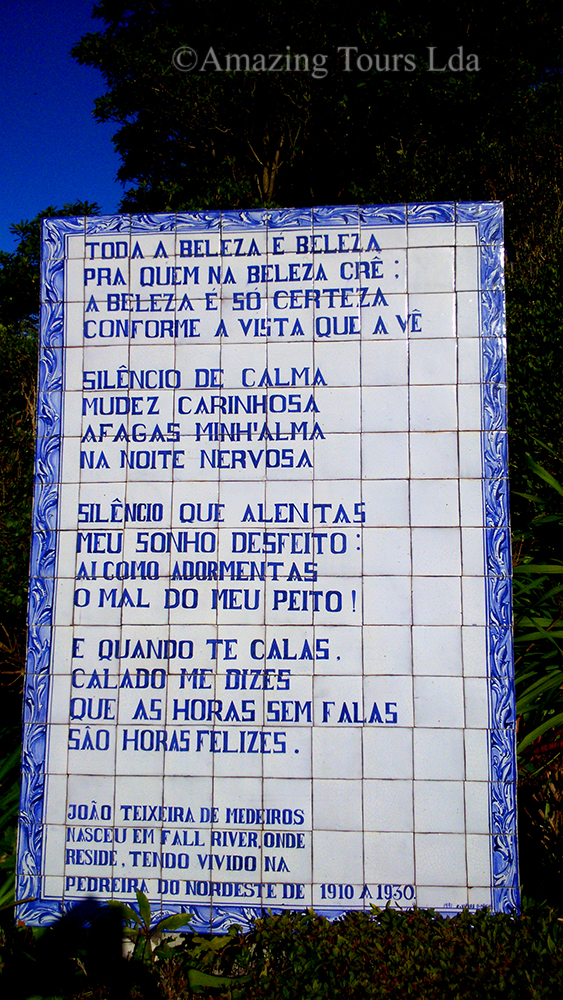 ©Amazing Tours Lda
TODA A BELEZA É BELEZA
PRA QUEM NA BELEZA CRÊ;
A BELEZA É SÓ CERTEZA
CONFORME A VISTA QUE A VÊ
SILÊNCIO DE CALMA
MUDEZ CARINHOSA
AFAGAS MINH'ALMA
NA NOITE NERVOSA
SILÊNCIO QUE ALENTAS
MEU SONHO DESFEITO:
AI COMO ADORMENTAS
O MAL DO MEU PEITO!
E QUANDO TE CALAS,
CALADO ME DIZES
QUE AS HORAS SEM FALAS
SÃO HORAS FELIZES.
JOÃO TEIXEIRA DE MEDEIROS
NASCEU EM FALL RIVER, ONDE
RESIDE, TENDO VIVIDO NA
PEDREIRA DO NORDESTE DE 1910 A 1930.